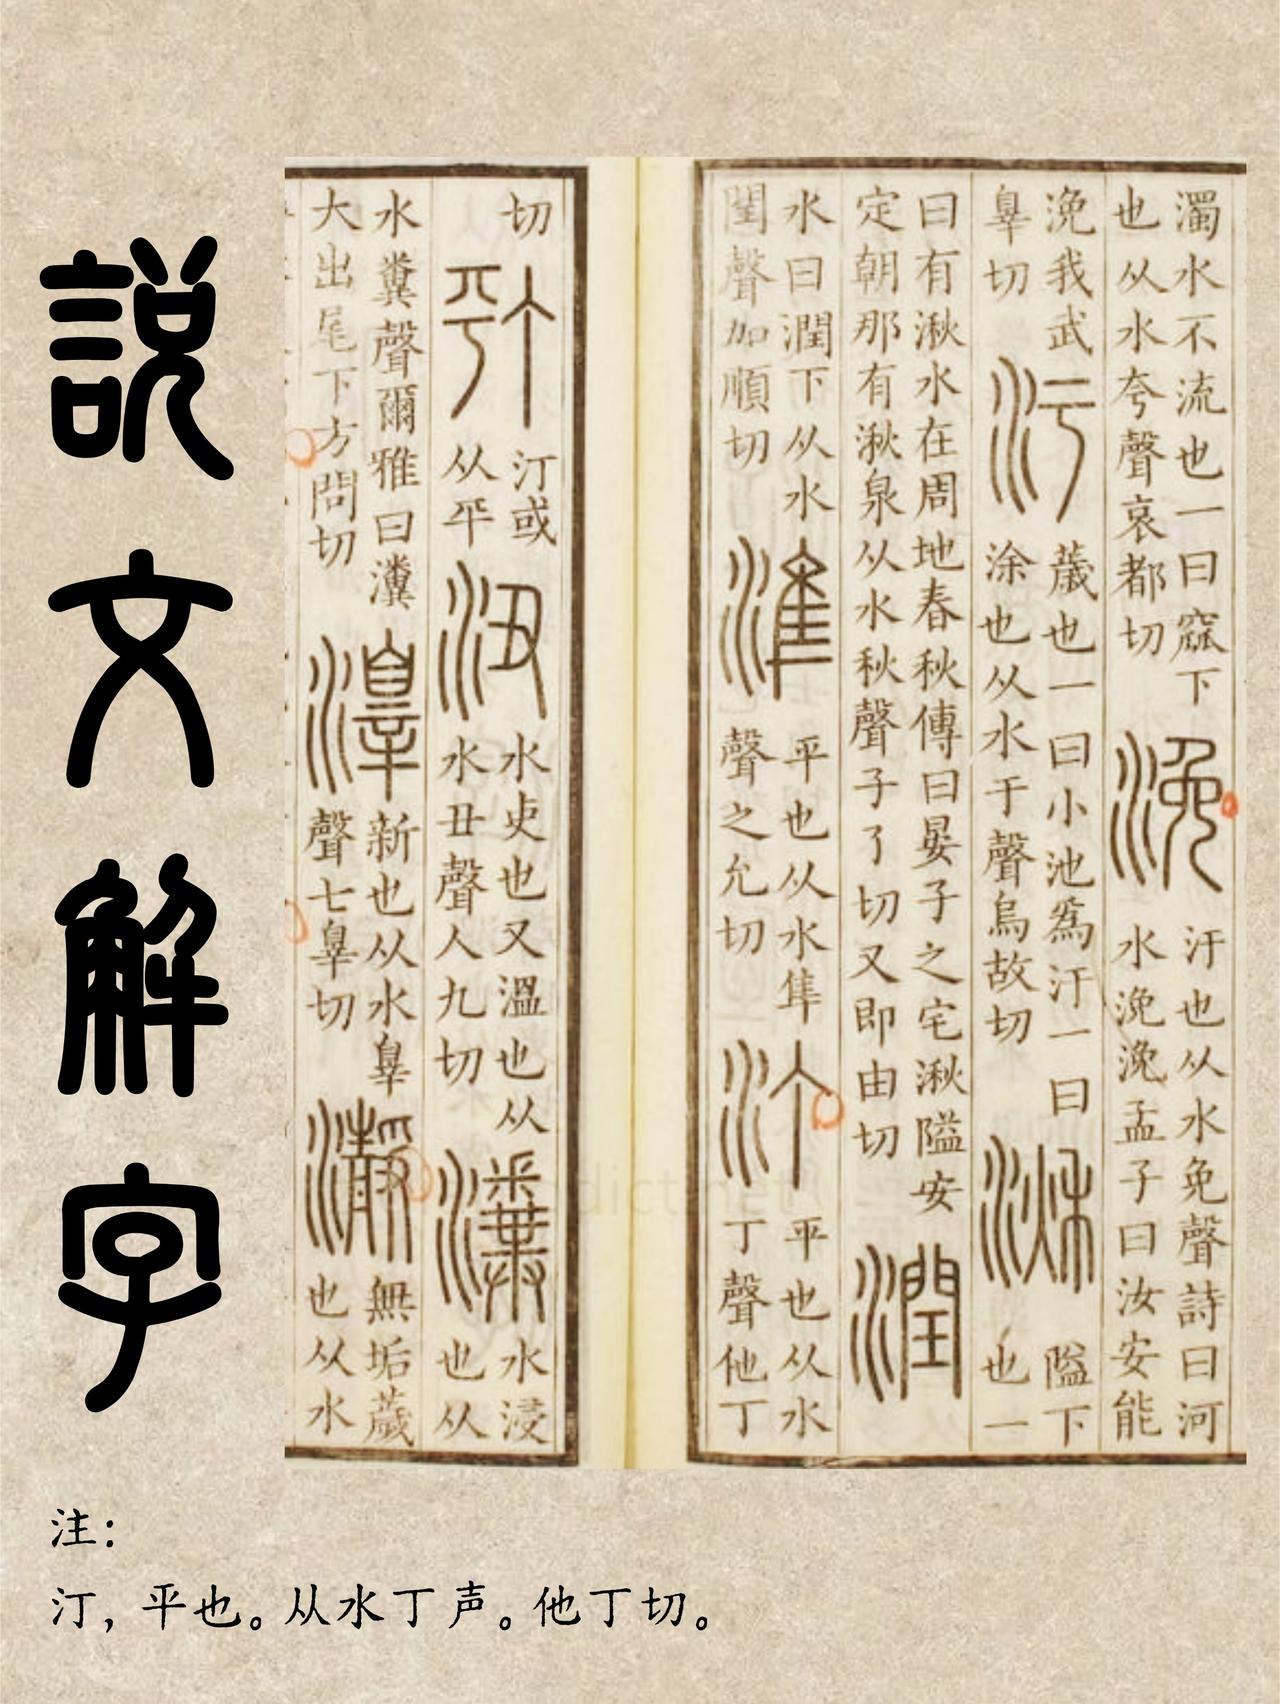 說文解字
濁水不流也一曰窳下
也从水夸聲哀都切
浼
汙也从水免聲詩曰河
水浼浼孟子曰汝安能
浼我武
辠切
汙
薉也一曰小池爲汙一曰
涂也从水于聲烏故切
湫
隘下
也一
曰有湫水在周地春秋傳曰晏子之宅湫隘安
定朝那有湫泉从水秋聲子了切又即由切
潤
水曰潤下从水
閏聲如順切
準
平也从水隼
聲之允切
汀
平也从水
丁聲他丁
切
汀或
从平
沑
水吏也又溫也从
水丑聲人九切
瀵
水浸
也从
水糞聲爾雅曰瀵
大出尾下方問切
新也从水辠
聲七辠切
瀞
無垢薉
也从水
注：
汀，平也。从水丁声。他丁切。